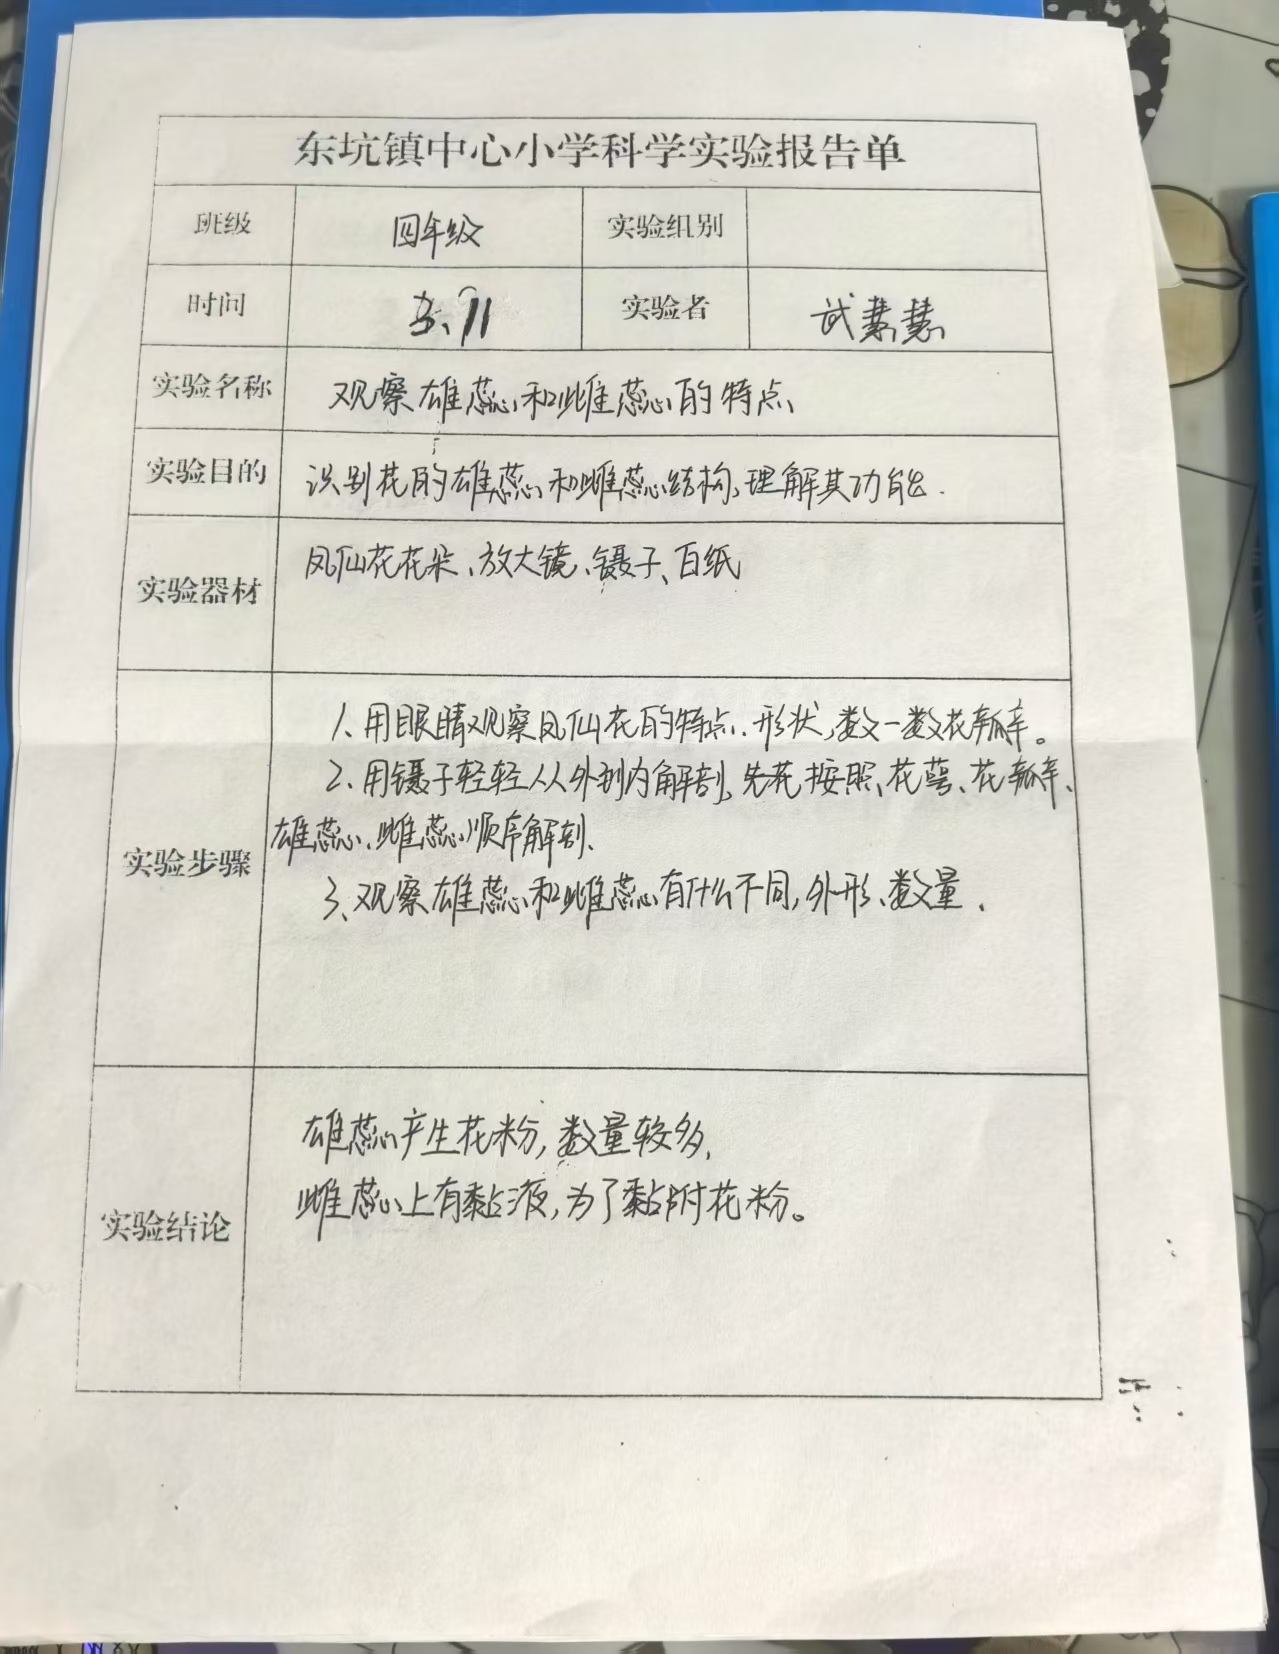 东坑镇中心小学科学实验报告单
班级 四年级 实验组别
时间 3.11 实验者 武慧慧
实验名称 观察雄蕊和雌蕊的特点
实验目的 识别花的雄蕊和雌蕊结构,理解其功能.
实验器材 凤仙花花朵、放大镜、镊子、白纸
实验步骤
1.用眼睛观察凤仙花的特点.形状,数一数花瓣。
2.用镊子轻轻从外到内解剖,先花按照、花萼、花瓣、
雄蕊、雌蕊顺序解剖.
3、观察雄蕊和雌蕊有什么不同,外形、数量.
实验结论
雄蕊产生花粉,数量较多,
雌蕊上有黏液,为了黏附花粉。